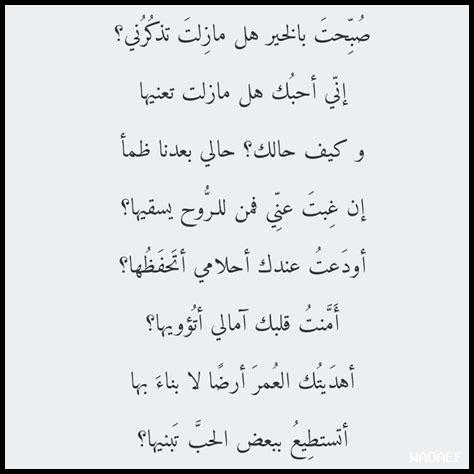 صُبِّحتَ بالخير هل مازِلتَ تذكُرُني؟
إنّي أحبُك هل مازلت تعنيها
و كيف حالك؟ حالي بعدنا ظمأ
إن غِبتَ عنِّي فمن للرُّوح يسقيها؟
أودَعتُ عندك أحلامي أتَحفَظُها؟
أَمَّنتُ قلبك آمالي أتُؤويها؟
أهدَيتُك العُمرَ أرضًا لا بناءَ بها
أتستطِيعُ ببعض الحبَّ تَبنيها؟
WADAEF